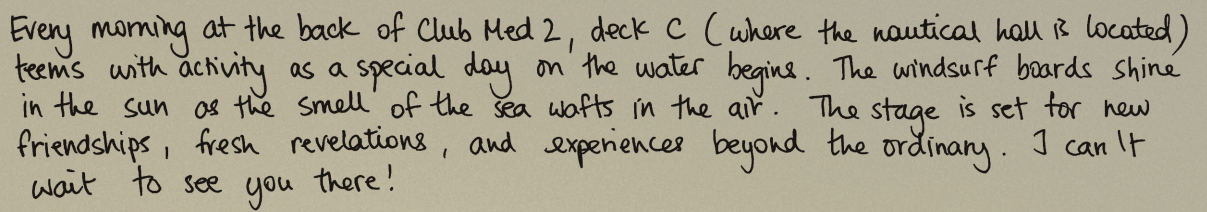 Every morning at the back of Club Med 2, deck C (where the nautical hall is located)
teems with activity as a special day on the water begins. The windsurf boards shine
in the sun as the smell of the sea wafts in the air. The stage is set for new
friendships, fresh revelations, and experiences beyond the ordinary. I can't
wait to see you there!